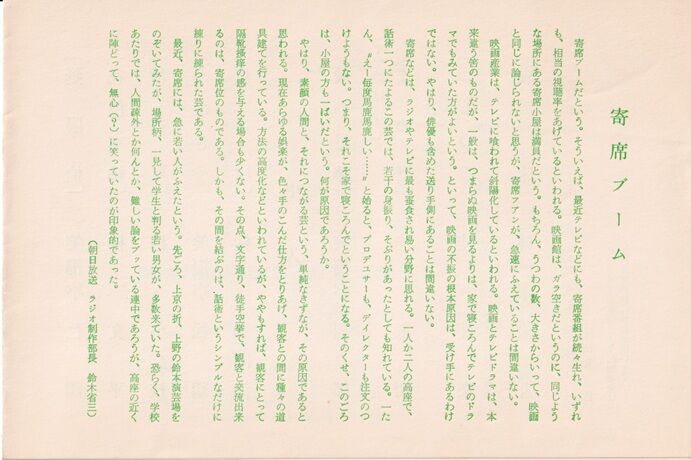 寄席ブーム
寄席ブームだという。そういえば、最近テレビなどにも、寄席番組が続々生れ、いずれ
も、相当の視聴率をあげているといわれる。映画館は、ガラ空きだというのに、同じよう
な場所にある寄席小屋は満員だという。もちろん、うつわの数、大きさからいって、映画
と同じに論じられないと思うが、寄席フアンが、急速にふえていることは間違いない。
映画産業は、テレビに喰われて斜陽化しているといわれる。映画とテレビドラマは、本
来違う筈のものだが、一般は、つまらぬ映画を見るよりは、家で寝ころんでテレビのドラ
マでもみていた方がよいという。といって、映画の不振の根本原因は、受け手にあるわけ
ではない。やはり、俳優も含めた送り手側にあることは間違いない。
寄席などは、ラジオやテレビに最も蚕食され易い分野に思れる。一人か二人の高座で、
話術一つにたよるこの芸では、若干の身振り、そぶりがあったとしても知れている。一た
ん、〝えー毎度馬鹿馬鹿しい……〟と始ると、プロデュサーも、デイレクターも注文のつ
けようもない。つまり、それこそ家で寝ころんでということになる。そのくせ、このごろ
は、小屋の方も一ぱいだという。何が原因であろうか。
やはり、素顔の人間と、それにつながる芸という、単純なきずなが、その原因であると
思われる。現在あらゆる娯楽が、色々手のこんだ仕方をとりあげ、観客との間に種々の道
具建てを行っている。方法の高度化などといわれているが、ややもすれば、観客にとって
隔靴掻痒の感を与える場合も少くない。その点、文字通り、徒手空拳で、観客と交流出来
るのは、寄席位のものである。しかも、その間を結ぶのは、話術というシンプルなだけに
練りに練られた芸である。
最近、寄席には、急に若い人がふえたという。先ごろ、上京の折、上野の鈴本演芸場を
のぞいてみたが、場所柄、一見して学生と判る若い男女が、多数来ていた。恐らく、学校
あたりでは、人間疎外とか何んとか、難しい論をブッている連中であろうが、高座の近く
に陣どって、無心（？）に笑っていたのが印象的であった。
（朝日放送　ラジオ制作部長　鈴木省三）